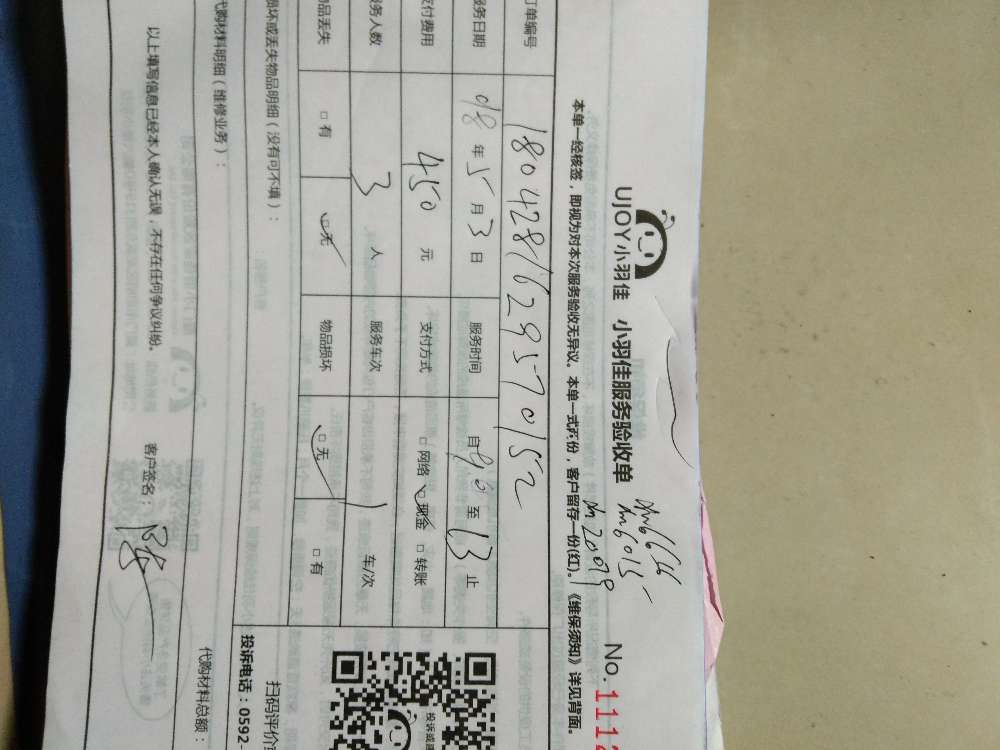 UJOY小羽佳 小羽佳服务验收单
No.1112
本单一经核签,即视为对本次服务验收无异议。本单一式两份,客户留存一份(红)。《维保须知》详见背面。
订单编号 1804281629570152
服务日期 018年5月3日 服务时间 自9:0至13止
支付费用 450元 支付方式 □网络 ☑现金 □转账
服务人数 3人 服务车次 1车/次
物品丢失 □有 ☑无 物品损坏 ☑无 □有
损坏或丢失物品明细(没有可不填):
代购材料明细(维修业务):
代购材料总额:
以上填写信息已经本人确认无误,不存在任何争议纠纷。 客户签名:
投诉或建
扫码评价
投诉电话:0592-